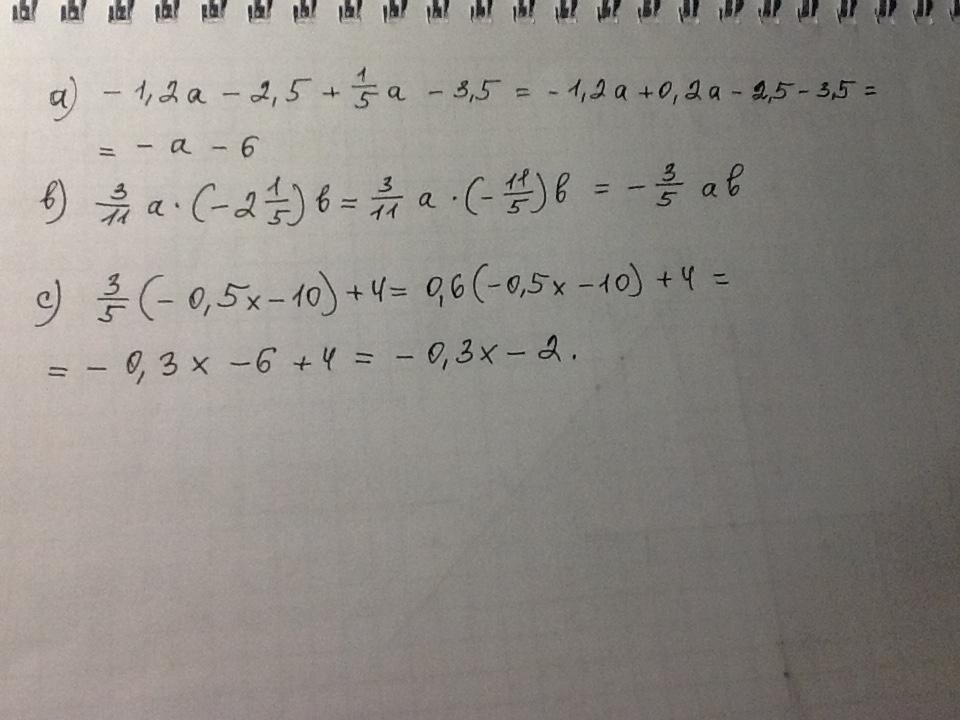 a) - 1,2a - 2,5 + 1/5 a - 3,5 = - 1,2a + 0,2a - 2,5 - 3,5 =
= - a - 6
в) 3/11 a · (- 2 1/5) в = 3/11 a · (- 11/5) в = - 3/5 aв
c) 3/5 (- 0,5x - 10) + 4 = 0,6 (-0,5x - 10) + 4 =
= - 0,3x - 6 + 4 = - 0,3x - 2.